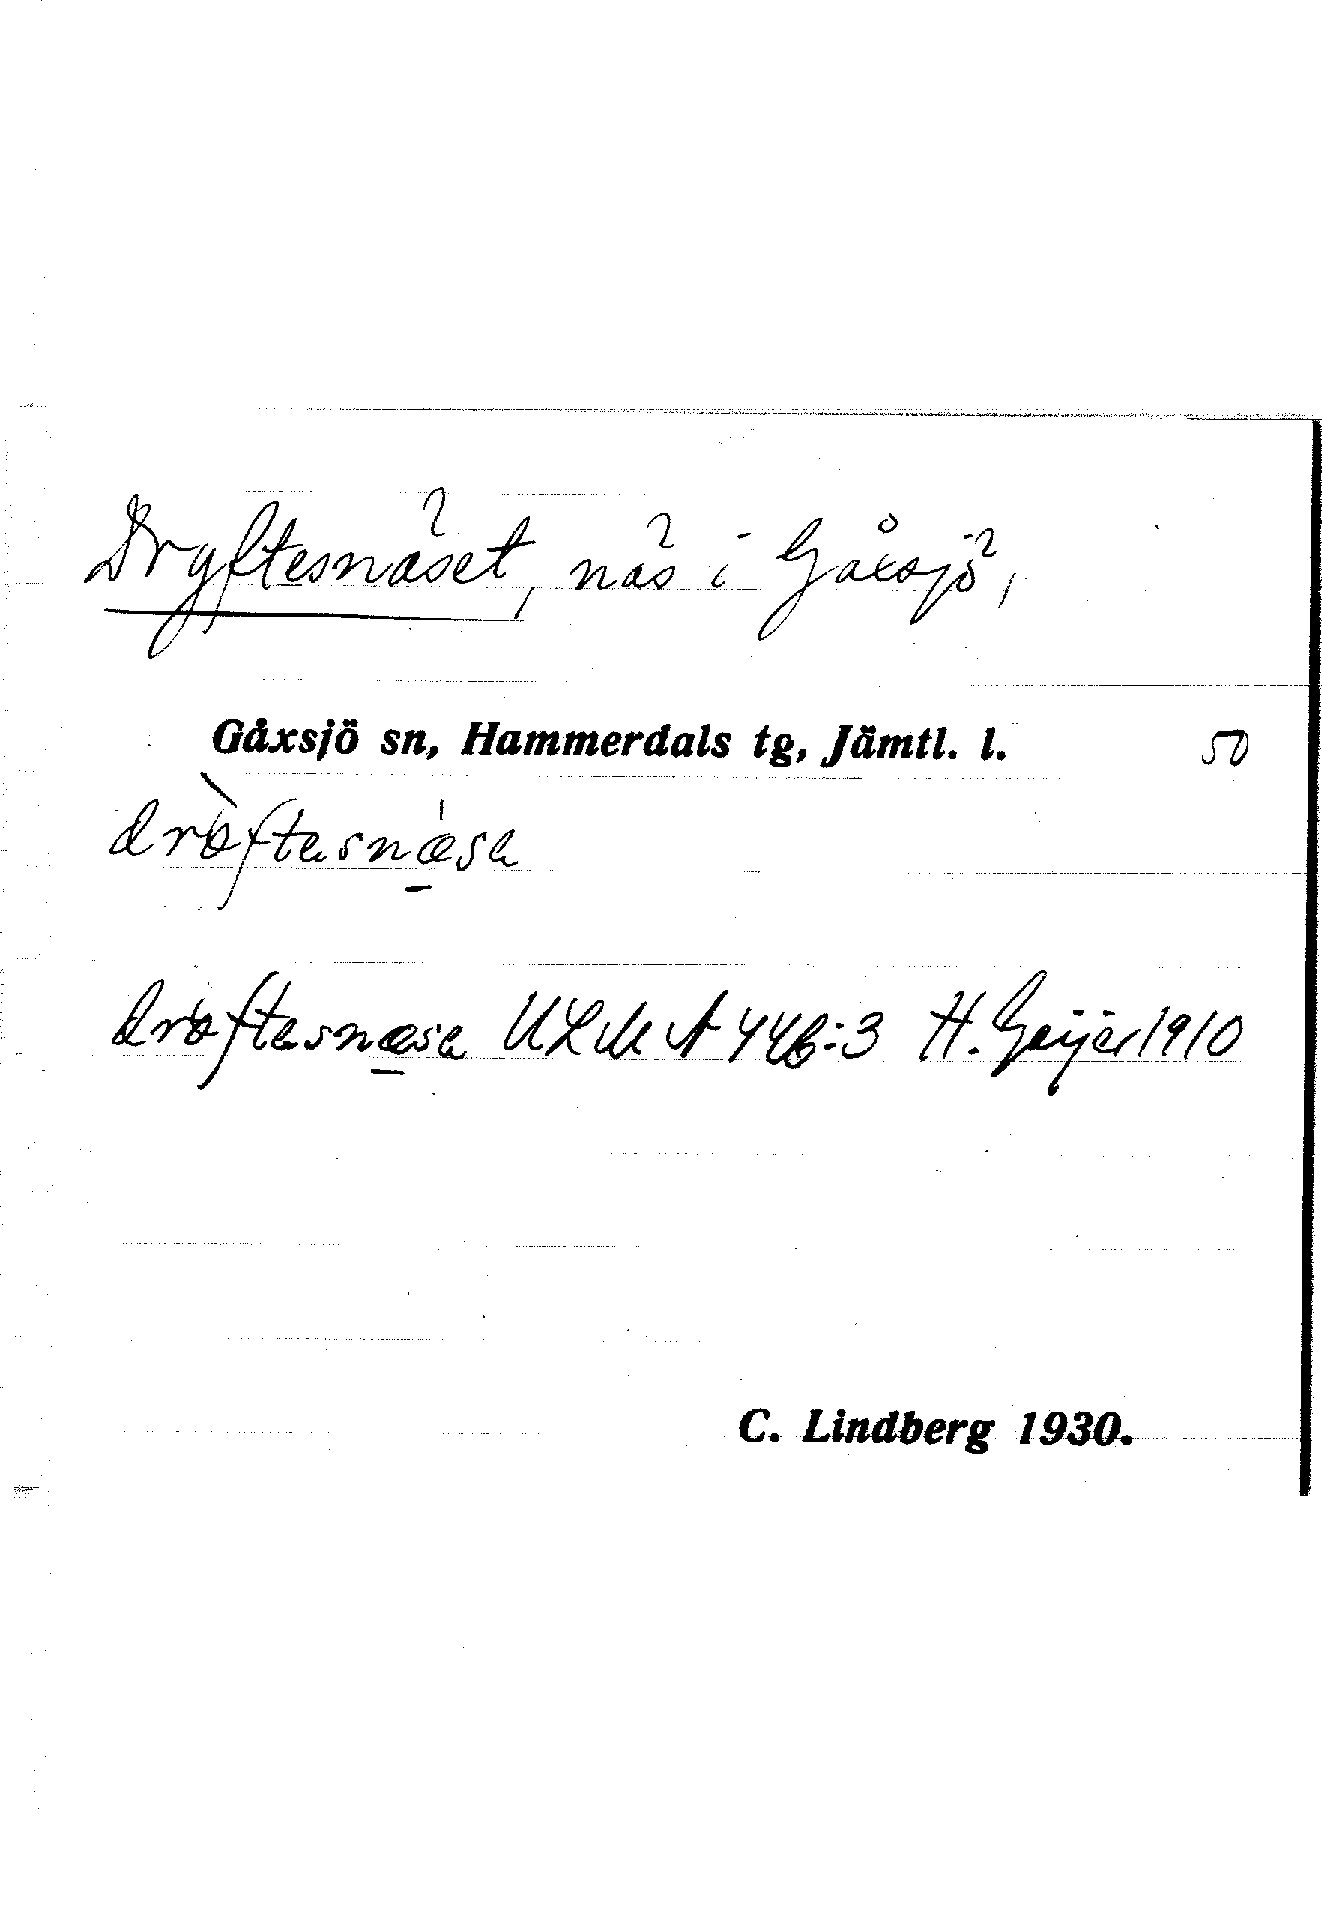 Dryftesnäset, näs i Gåxsjö,
Gåxsjö sn, Hammerdals tg, Jämtl. l. 50
drø̀ftasnæ̍sa
drøftasnæsa ULMA 446:3 H. Geijer 1910
C. Lindberg 1930.